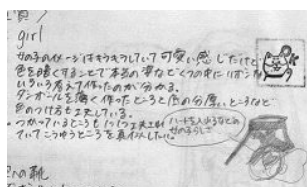 girl
女の子のイメージはキラキラしていて可愛い感じだけど
色を暗くすることで本当の姿など
いろいろ考えて作ったのが分かる。
ダンボールを薄く作ったところと底の分厚いところなど
色のつけ方も工夫している。
つかっているところも1つ1つ工夫され
ていてこうゆうところを真似したい。
ハートを入れるなどの
女の子らしさ
への靴